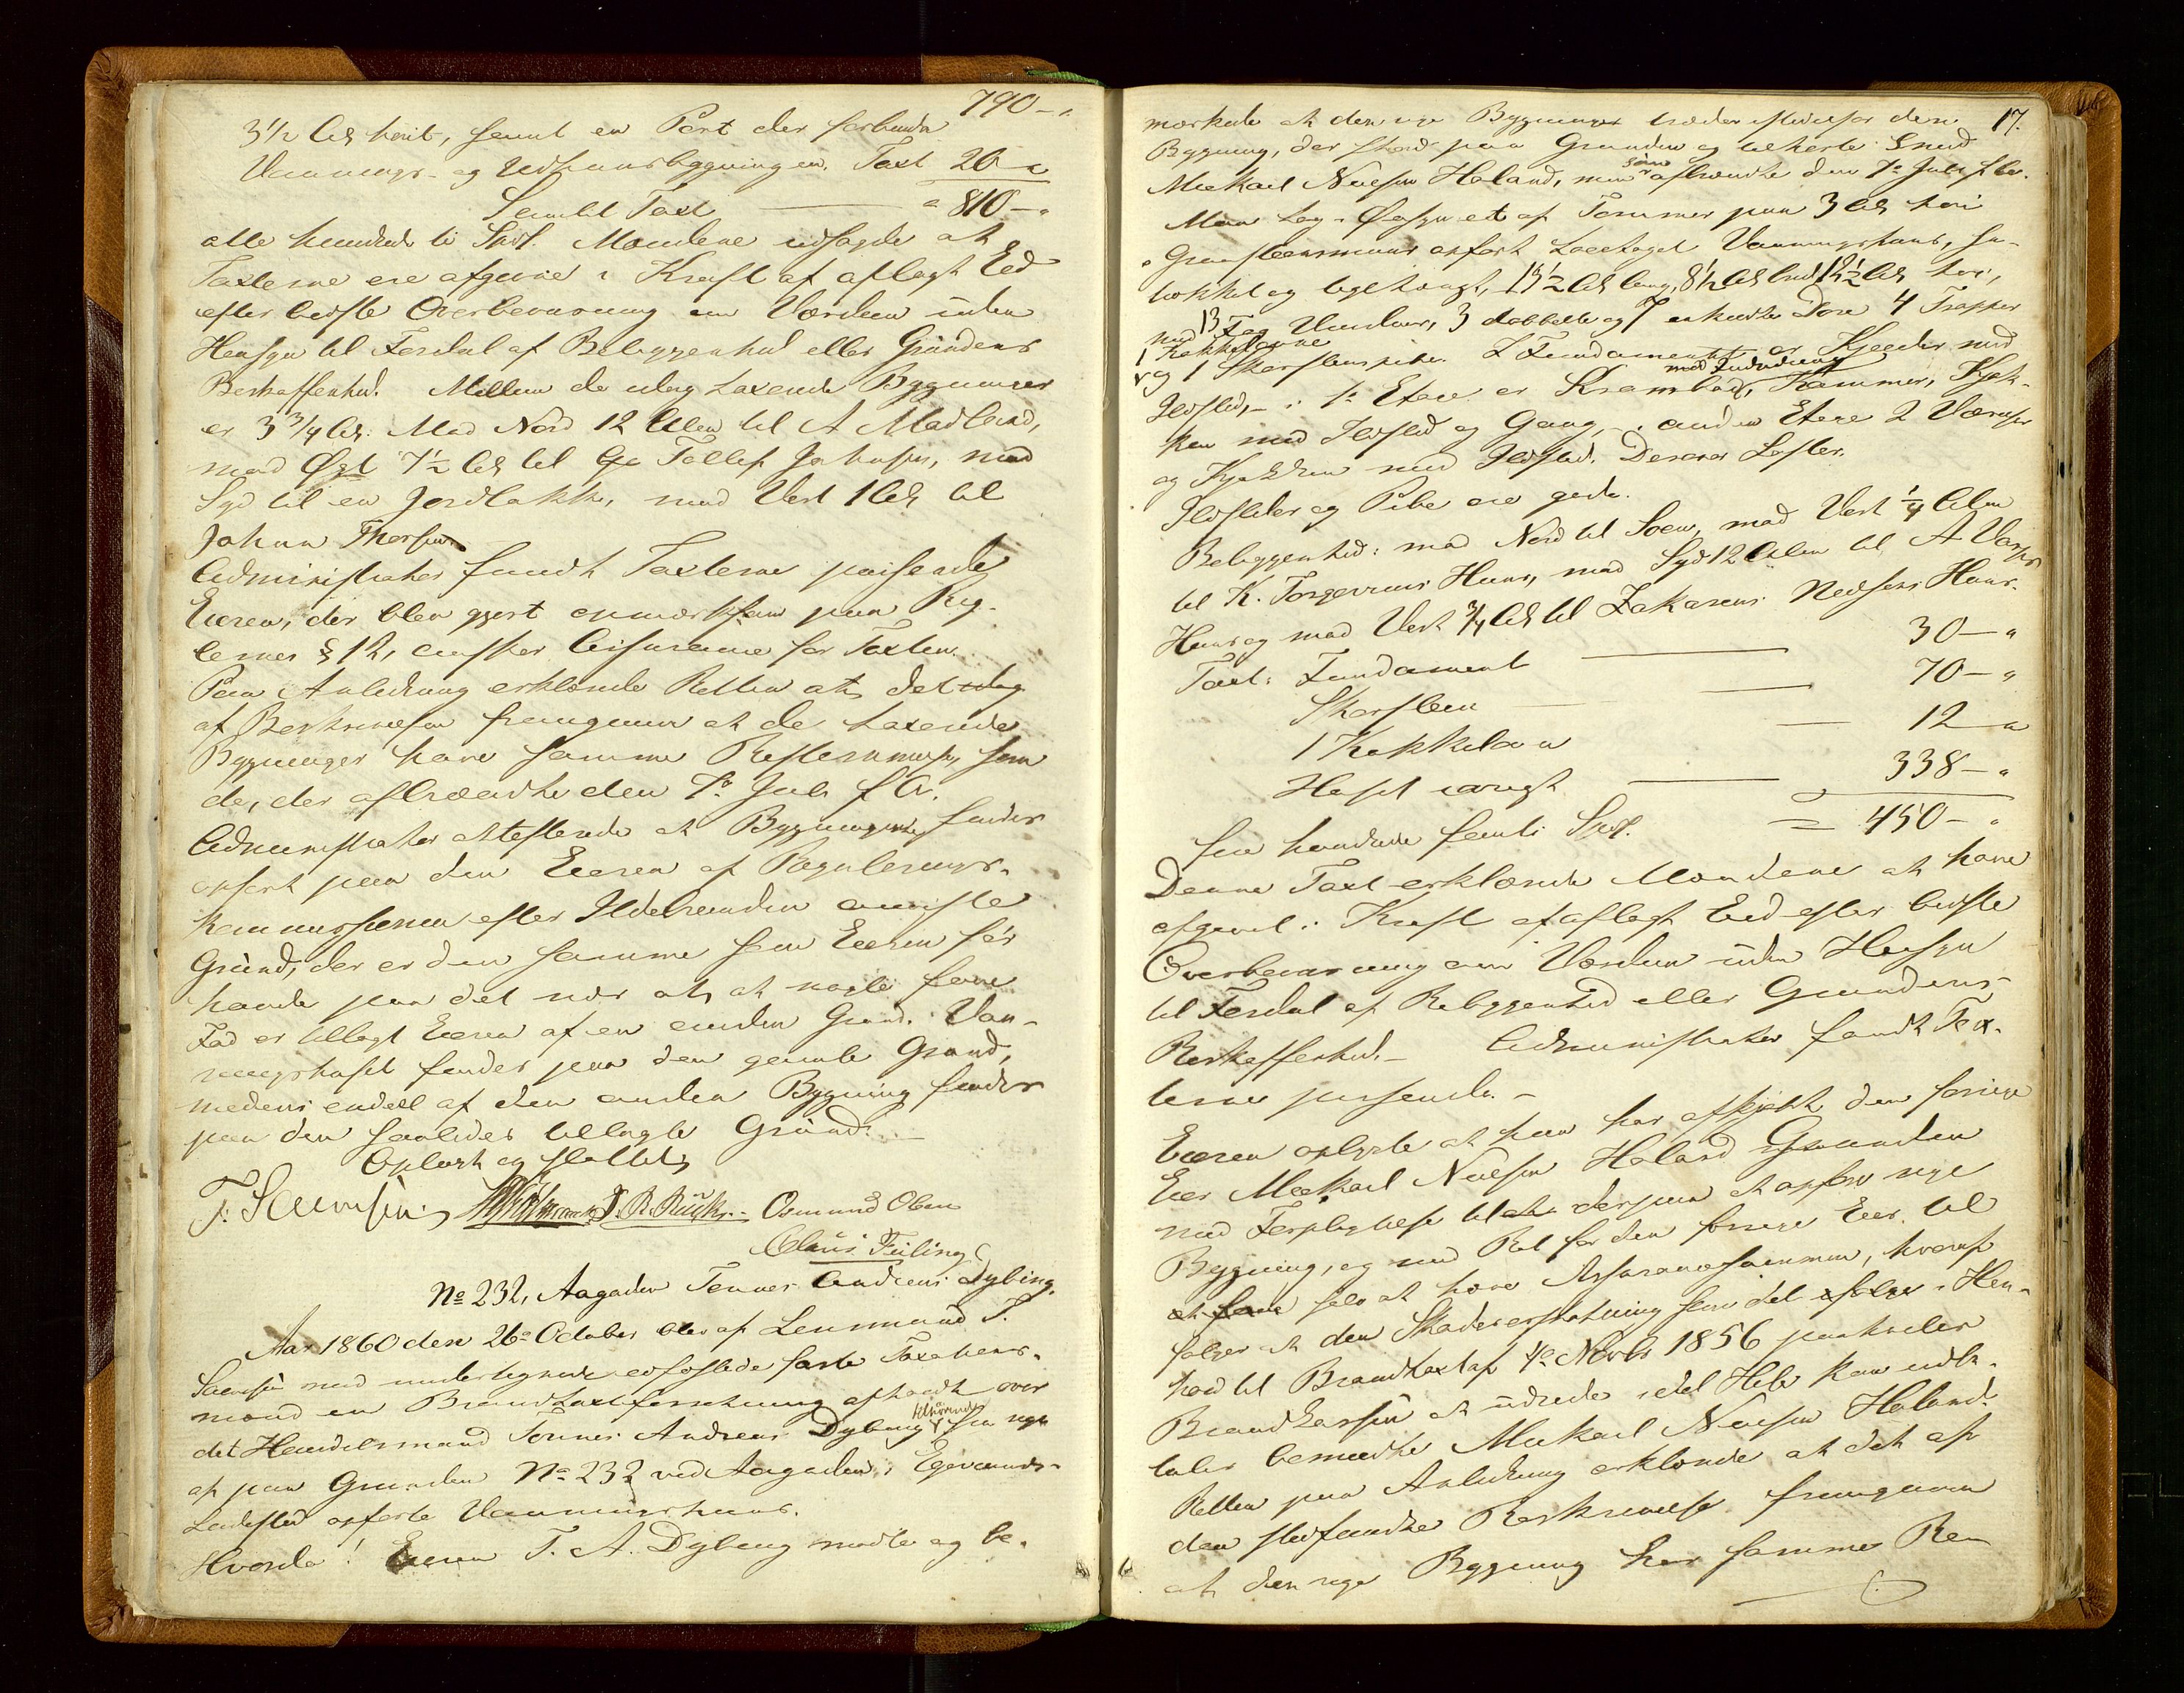 790-"
3½ Al høit, samt en Port der forbinder
Vaanings- og Udhuusbygningen, Taxt 20 "
Samlet Taxt — " 810-"
otte hundrede ti Spdl. Mændene udsagde at
Taxterne ere afgivne i Kraft af aflagt Eed
efter bedste Overbeviisning om Værdien uden
Hensyn til Fordel af Beliggenhed eller Grundens
Beskaffenhed. Mellem de idag taxerede Bygninger
er 3¾ Al. Mod Nord 12 Alen til A Madland,
mod Øst 7½ Al til Tollef Johnsen, mod
Syd til en Jordløkke, mod Vest 1 Al til
Johan Thorsen.
Administrator fandt Taxterne passende
Eieren, der blev gjort opmærksom paa Reg-
lernes § 12, ønsker Assurance for Taxten.
Paa Anledning erklærede Retten at det idag
af Beskrivelsen fremgaar at de taxerede
Bygninger have samme Bestemmelse som
de, der afbrændte den 1e Juli f A.
Administrator attesterede at Bygningerne findes
opført paa den Eieren af Regulerings-
kommissionen efter Ildebranden anviste
Grund, der er den samme som Eieren før
havde paa det nær at nogle faae
Fod er tillagt Eieren af en anden Grund. Vaa-
ningshuset findes paa den gamle Grund,
medens endeel af den anden Bygning findes
paa den saaledes tillagte Grund.
Oplæst og sluttet
F. Svensen J. R. Rück Osmund Olsen
Claus Feiling
No 232, Aagaden Tønnes Andreas Dybing.
Aar 1860 den 26e October blev af Lensmand F.
Svensen med undertegnede edfæstede faste Taxations-
mænd en Brandtaxtforretning afholdt over
det Handelsmand Tønnes Andreas Dybing tilhørende nye
af paa Grunden No 232 ved Aagaden i Egersunds
Ladested opførte Vaaningshuus.
Hvorda! Eieren T. A. Dybing mødte og be-
17.
mærkede at den nye Bygninger træder istedetfor den
Bygning, der stod paa Grunden og tilhørte Smed
Mickael Nielsen Haland, men som afbrændte den 1e Juli f A.
Man tog i Øiesyn et af Tømmer paa 3 Al høi
Graasteensmuur opført toetages Vaaningshuus,
tækket og beklædt, 13½ Al lang, 8½ Al bred 12½ Al høi,
med 13 Fag Vinduer, 3 dobbelte og 7 enkelte Døre 4 Trapper
1 Kakkelovne
og 1 Skorsteenspibe. I Fundamentet er Kjelder med
Ildsted, - i 1e Etage er Krambod, med Indredning Kammer, Kjøk-
ken med Ildsted og Gang, - i anden Etage 2 Værelser
og Kjøkken med Ildsted. Derover Lofter.
Ildsteder og Pibe ere gode.
Beliggenhed: mod Nord til Søen, mod Vest ¼ Alen
til K. Torgersens Huus, mod Syd 12 Alen til A
Huus og mod Vest ¾ Al til Zakarias Nielsens Huus.
Taxt: Fundament — 30-"
Skorsteen — 70-"
1 Kakkelovn — 12 "
Huset øvrigt — 338-"
fire hundrede femti Spdl. = 450-"
Denne Taxt erklærede Mændene at have
afgivet i Kraft af aflagt Eed efter bedste
Overbeviisning om Værdien uden Hensyn
til Fordel af Beliggenhed eller Grundens
Beskaffenhed. - Administrator fandt Tax-
terne passende. -
Eieren oplyste at han har afkjøbt den forrige
Eier Mickael Nielsen Haland Grunden
med Forpligtelse til at derpaa at opføre nye
Bygning, og med Ret for den forrige Eier til
selv at hæve Assurancesummen, hvoraf
følger at den Skadeserstatning som det i Hen-
hold til Brandtaxt af 4e Novbr 1856 paahviler
Brandkassen at udrede i det Hele kan udbe-
tales bemeldte Mickael Nielsen Haland.
Retten paa Anledning erklærede at det af
den stedfundne Beskrivelse fremgaar
at den nye Bygning har samme Be-